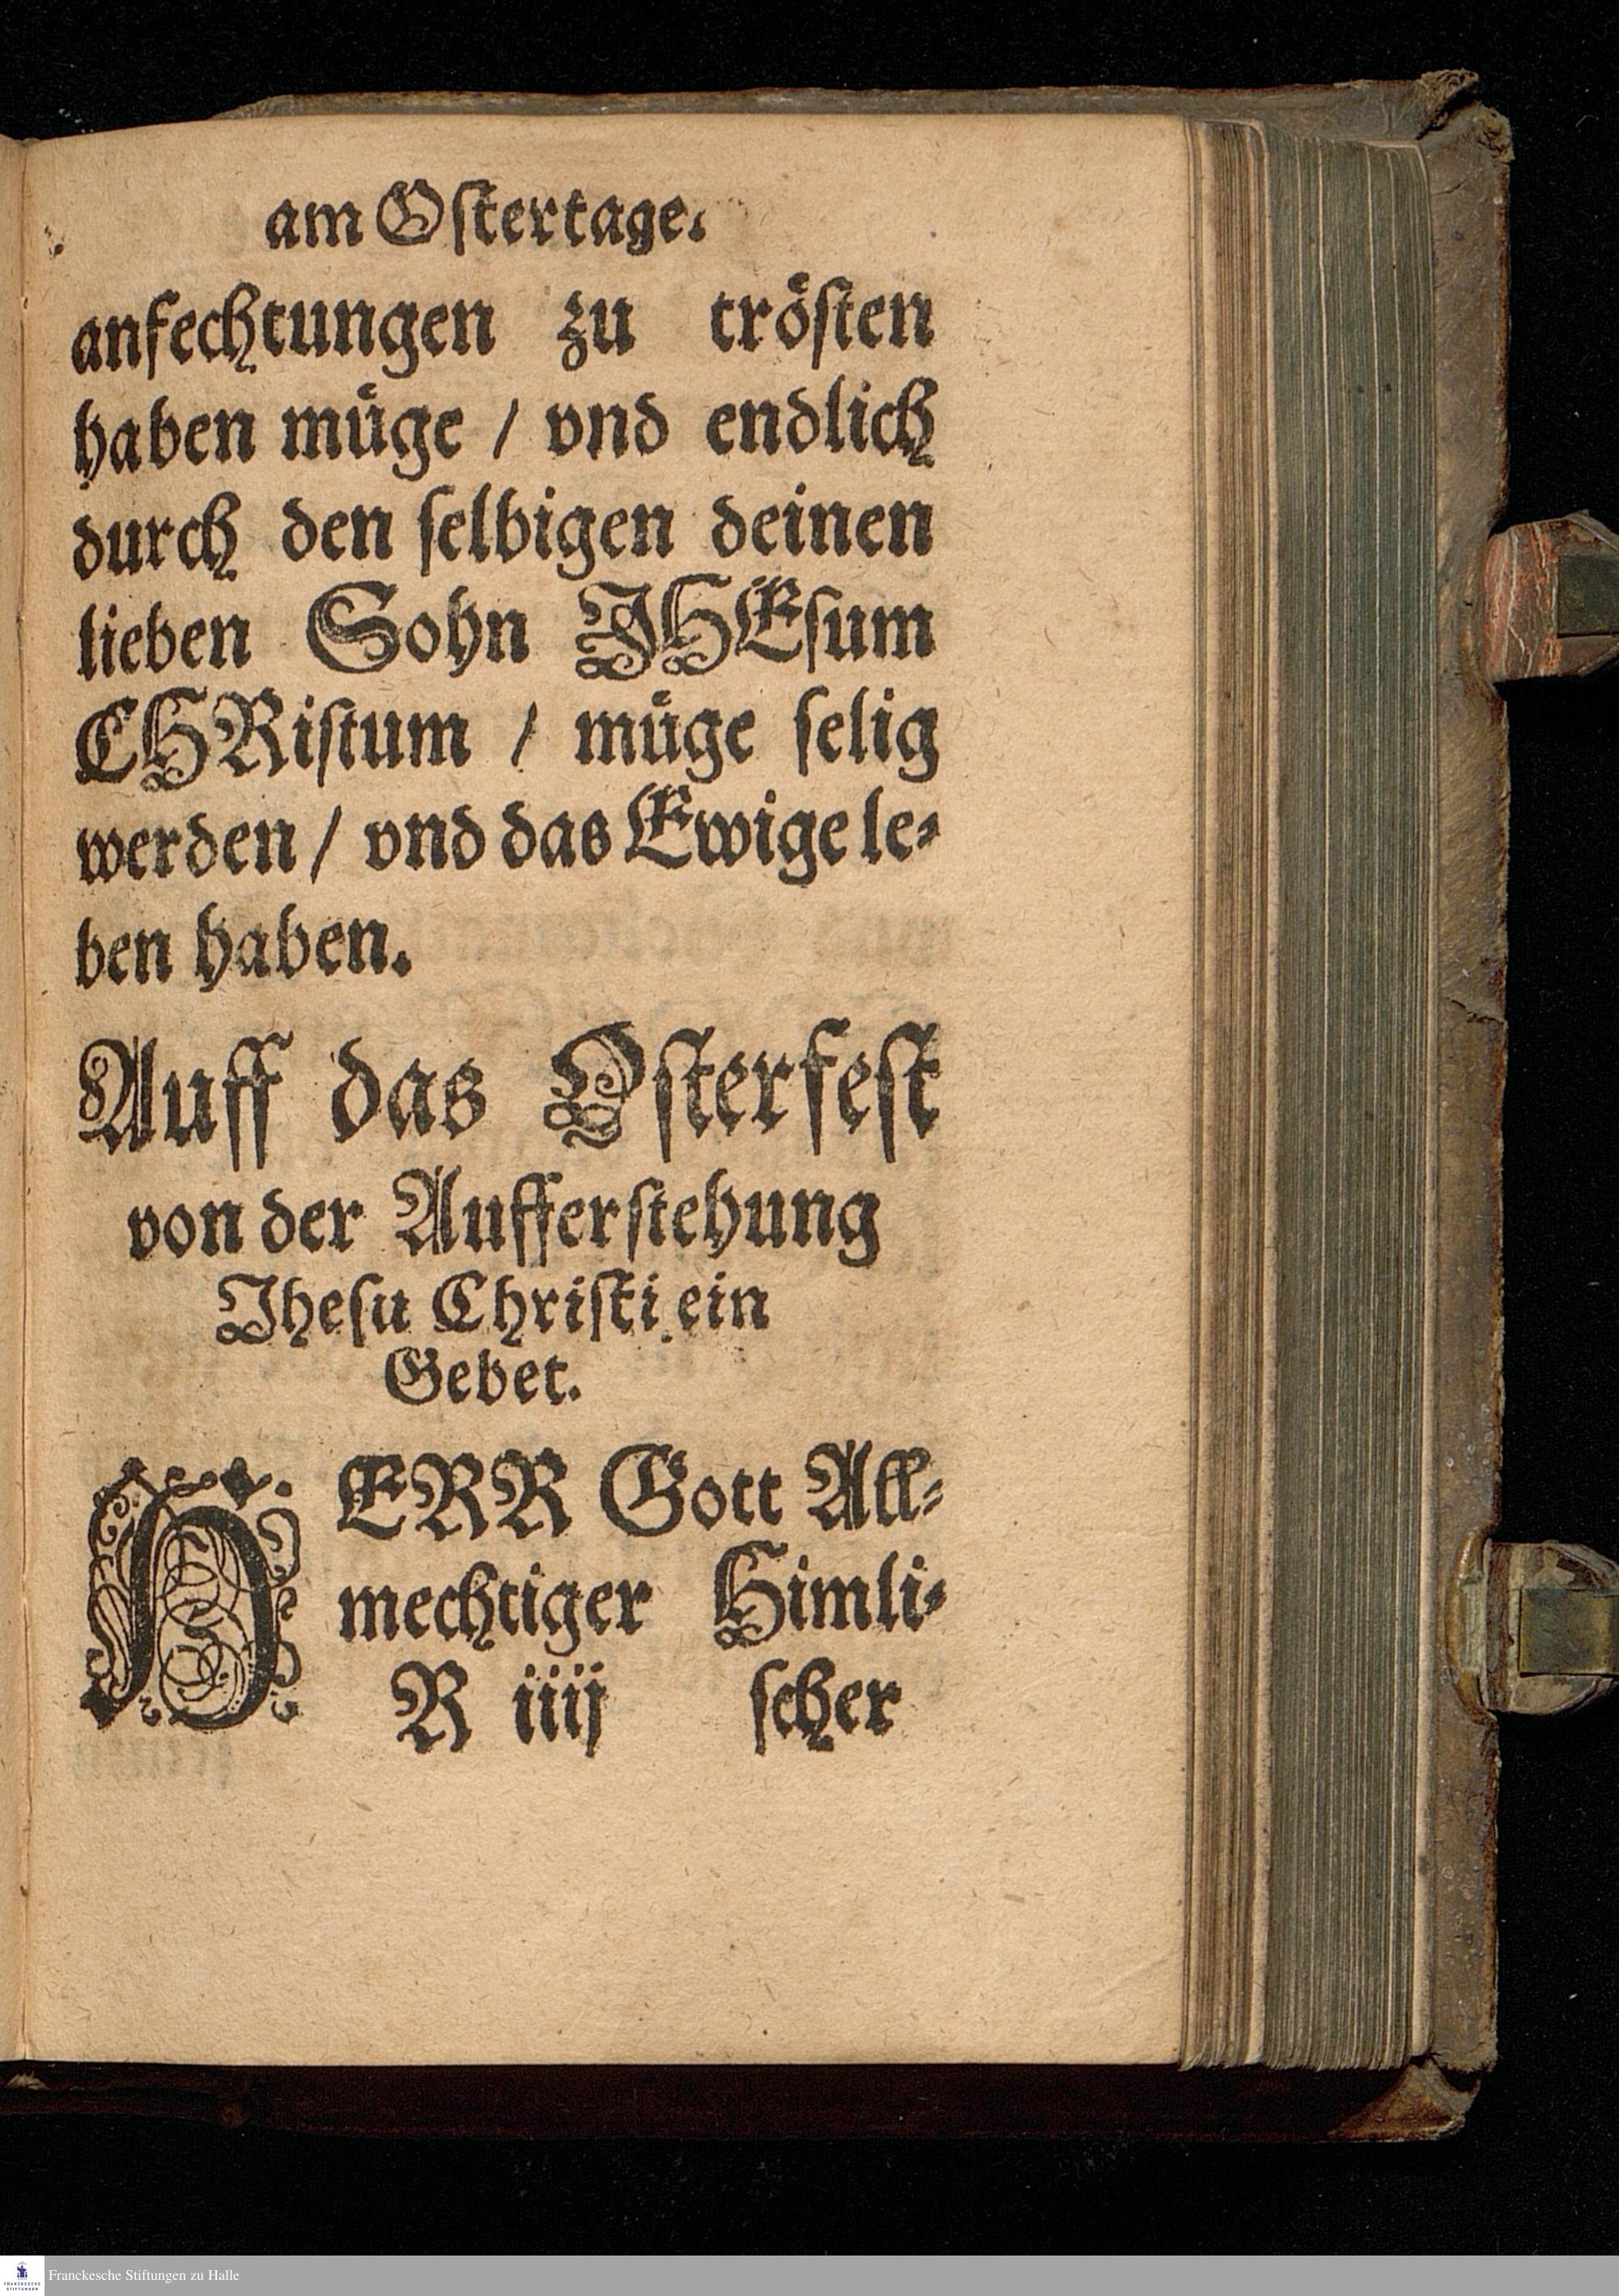 am Ostertage.
anfechtungen zu trösten
haben müge / vnd endlich
durch den selbigen deinen
lieben Sohn JHEsum
CHRistum / müge selig
werden / vnd das Ewige le-
ben haben.
Auff das Osterfest
von der Aufferstehung
Jhesu Christi ein
Gebet.
HERR Gott All-
mechtiger Himli-
R iiij scher
FRANCKESCHE STIFTUNGEN
Franckesche Stiftungen zu Halle